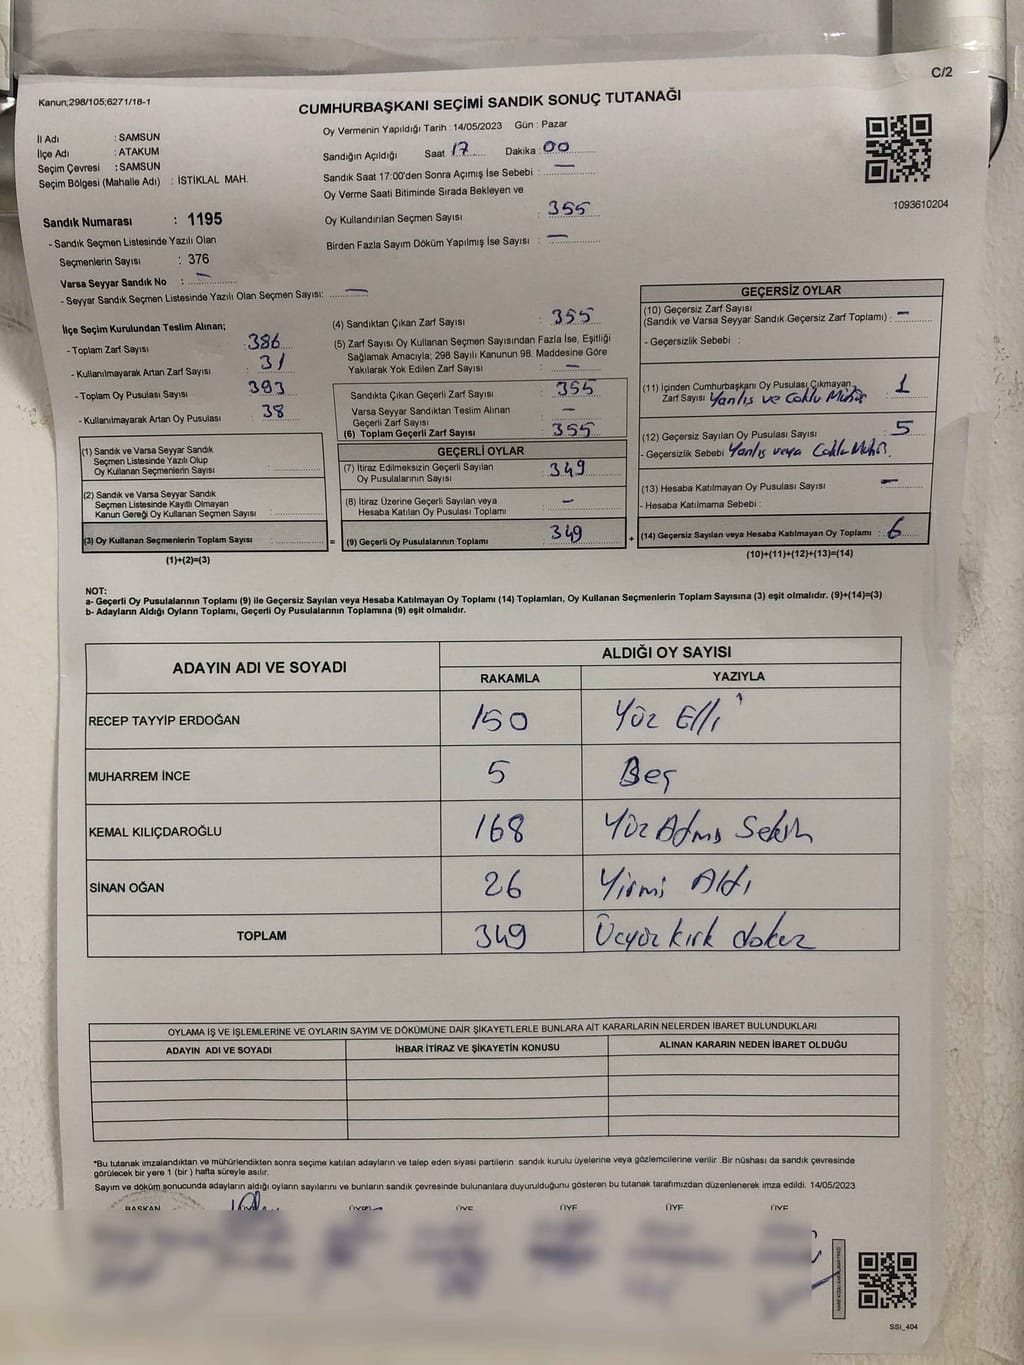 C/2
Kanun;298/105;6271/18-1
CUMHURBAŞKANI SEÇİMİ SANDIK SONUÇ TUTANAĞI
Oy Vermenin Yapıldığı Tarih : 14/05/2023 Gün : Pazar
İl Adı : SAMSUN
İlçe Adı : ATAKUM
Seçim Çevresi : SAMSUN
Seçim Bölgesi (Mahalle Adı) : İSTİKLAL MAH.
Sandığın Açıldığı Saat 17 Dakika : 00
Sandık Saat 17:00'den Sonra Açımış İse Sebebi : —
Oy Verme Saati Bitiminde Sırada Bekleyen ve
Oy Kullandırılan Seçmen Sayısı : 355
Birden Fazla Sayım Döküm Yapılmış İse Sayısı : —
1093610204
Sandık Numarası : 1195
- Sandık Seçmen Listesinde Yazılı Olan
Seçmenlerin Sayısı : 376
Varsa Seyyar Sandık No : —
- Seyyar Sandık Seçmen Listesinde Yazılı Olan Seçmen Sayısı: —
İlçe Seçim Kurulundan Teslim Alınan;
- Toplam Zarf Sayısı : 386
- Kullanılmayarak Artan Zarf Sayısı : 31
- Toplam Oy Pusulası Sayısı : 393
- Kullanılmayarak Artan Oy Pusulası : 38
(1) Sandık ve Varsa Seyyar Sandık
Seçmen Listesinde Yazılı Olup
Oy Kullanan Seçmenlerin Sayısı :
(2) Sandık ve Varsa Seyyar Sandık
Seçmen Listesinde Kayıtlı Olmayan
Kanun Gereği Oy Kullanan Seçmen Sayısı :
(3) Oy Kullanan Seçmenlerin Toplam Sayısı : =
(1)+(2)=(3)
(4) Sandıktan Çıkan Zarf Sayısı : 355
(5) Zarf Sayısı Oy Kullanan Seçmen Sayısından Fazla İse, Eşitliği
Sağlamak Amacıyla; 298 Sayılı Kanunun 98. Maddesine Göre
Yakılarak Yok Edilen Zarf Sayısı : —
Sandıkta Çıkan Geçerli Zarf Sayısı : 355
Varsa Seyyar Sandıktan Teslim Alınan
Geçerli Zarf Sayısı : —
(6) Toplam Geçerli Zarf Sayısı : 355
GEÇERLİ OYLAR
(7) İtiraz Edilmeksizin Geçerli Sayılan
Oy Pusulalarının Sayısı : 349
(8) İtiraz Üzerine Geçerli Sayılan veya
Hesaba Katılan Oy Pusulası Toplamı : —
(9) Geçerli Oy Pusulalarının Toplamı : 349 +
GEÇERSİZ OYLAR
(10) Geçersiz Zarf Sayısı
(Sandık ve Varsa Seyyar Sandık Geçersiz Zarf Toplamı) : —
- Geçersizlik Sebebi :
(11) İçinden Cumhurbaşkanı Oy Pusulası Çıkmayan
Zarf Sayısı Yanlış ve Çoklu Mühür 1
(12) Geçersiz Sayılan Oy Pusulası Sayısı : 5
- Geçersizlik Sebebi Yanlış veya Çoklu Mühür.
(13) Hesaba Katılmayan Oy Pusulası Sayısı : —
- Hesaba Katılmama Sebebi :
(14) Geçersiz Sayılan veya Hesaba Katılmayan Oy Toplamı : 6
(10)+(11)+(12)+(13)=(14)
NOT:
a- Geçerli Oy Pusulalarının Toplamı (9) ile Geçersiz Sayılan veya Hesaba Katılmayan Oy Toplamı (14) Toplamları, Oy Kullanan Seçmenlerin Toplam Sayısına (3) eşit olmalıdır. (9)+(14)=(3)
b- Adayların Aldığı Oyların Toplamı, Geçerli Oy Pusulalarının Toplamına (9) eşit olmalıdır.
ADAYIN ADI VE SOYADI ALDIĞI OY SAYISI
RAKAMLA YAZIYLA
RECEP TAYYİP ERDOĞAN 150 Yüz Elli
MUHARREM İNCE 5 Beş
KEMAL KILIÇDAROĞLU 168 Yüz Atmış Sekiz
SİNAN OĞAN 26 Yirmi Altı
TOPLAM 349 Üçyüz kırk dokuz
OYLAMA İŞ VE İŞLEMLERİNE VE OYLARIN SAYIM VE DÖKÜMÜNE DAİR ŞİKAYETLERLE BUNLARA AİT KARARLARIN NELERDEN İBARET BULUNDUKLARI
ADAYIN ADI VE SOYADI İHBAR İTİRAZ VE ŞİKAYETİN KONUSU ALINAN KARARIN NEDEN İBARET OLDUĞU
*Bu tutanak imzalandıktan ve mühürlendikten sonra seçime katılan adayların ve talep eden siyasi partilerin sandık kurulu üyelerine veya gözlemcilerine verilir .Bir nüshası da sandık çevresinde
görülecek bir yere 1 (bir ) hafta süreyle asılır.
Sayım ve döküm sonucunda adayların aldığı oyların sayılarını ve bunların sandık çevresinde bulunanlara duyurulduğunu gösteren bu tutanak tarafımızdan düzenlenerek imza edildi. 14/05/2023
BAŞKAN ÜYE ÜYE ÜYE ÜYE ÜYE
SSI_404